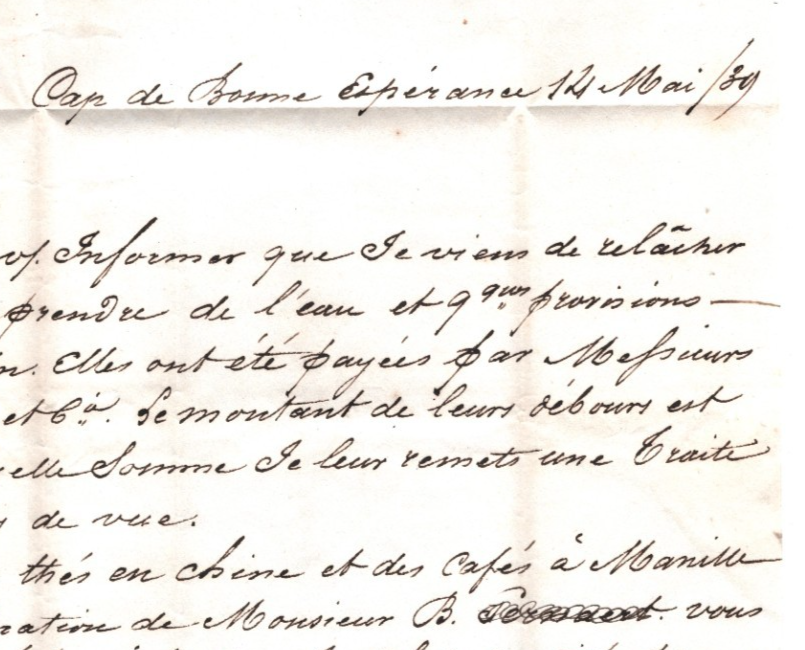 Cap de Bonne Espérance 14 Mai /39
vs. Informer que Je viens de relâcher
prendre de l'eau et qques provisions —
n. Elles ont été payées par Messieurs
et Co. Le montant de leurs débours est
elle Somme Je leur remets une Traite
s de vue.
thés en chine et des cafés à Manille
ration de Monsieur B. vous